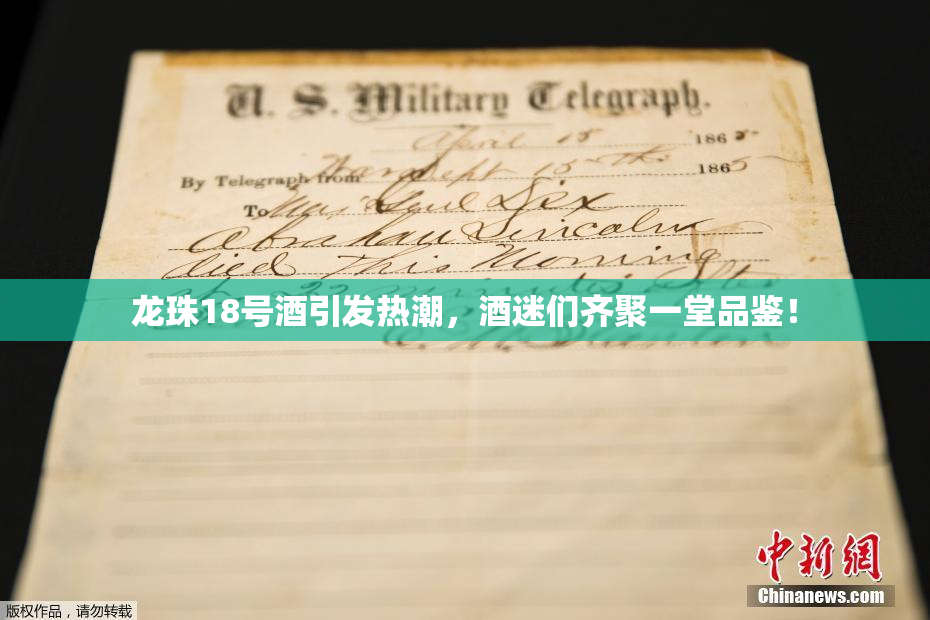 U. S. Military Telegraph.
April 15 1865
By Telegraph from War Dept 15th 1865
To Maj Genl Dix
Abraham Lincoln
died This Morning
龙珠18号酒引发热潮，酒迷们齐聚一堂品鉴！
中新网
Chinanews.com
版权作品，请勿转载